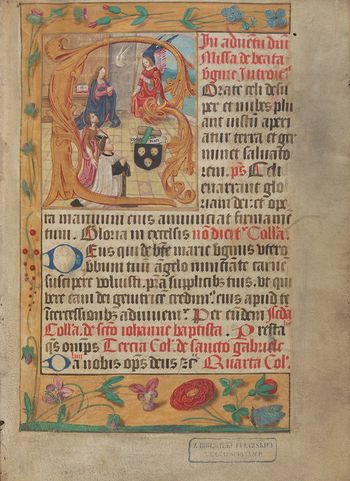 In adventu dni
Missa de beata
vgine Introit9
Orate celi desu
per et nubes plu
ant iustū aperi
atur terra et ger
minet saluato
rem. ps Celi
enarrant glo
riam dei et ope
ra manuum eius annunciat firmame
tum. Gloria in excelsis nō dicit Coll'a.
Deus qui de bte marie vginis vtero
verbum tuū āgelo nunciante carnē
suscipere voluisti. pra supplicib9 tuis. vt qui
vere eam dei genitricē credim9 eius apud te
intercessionib9 adiuuem9. P eundem
Coll'a. de scto iohanne baptista. Presta
qs omps Tercia Col'. de sancto gabriele
Da nobis ops deus Quarta Col'.
Z BIBLIOTEKI